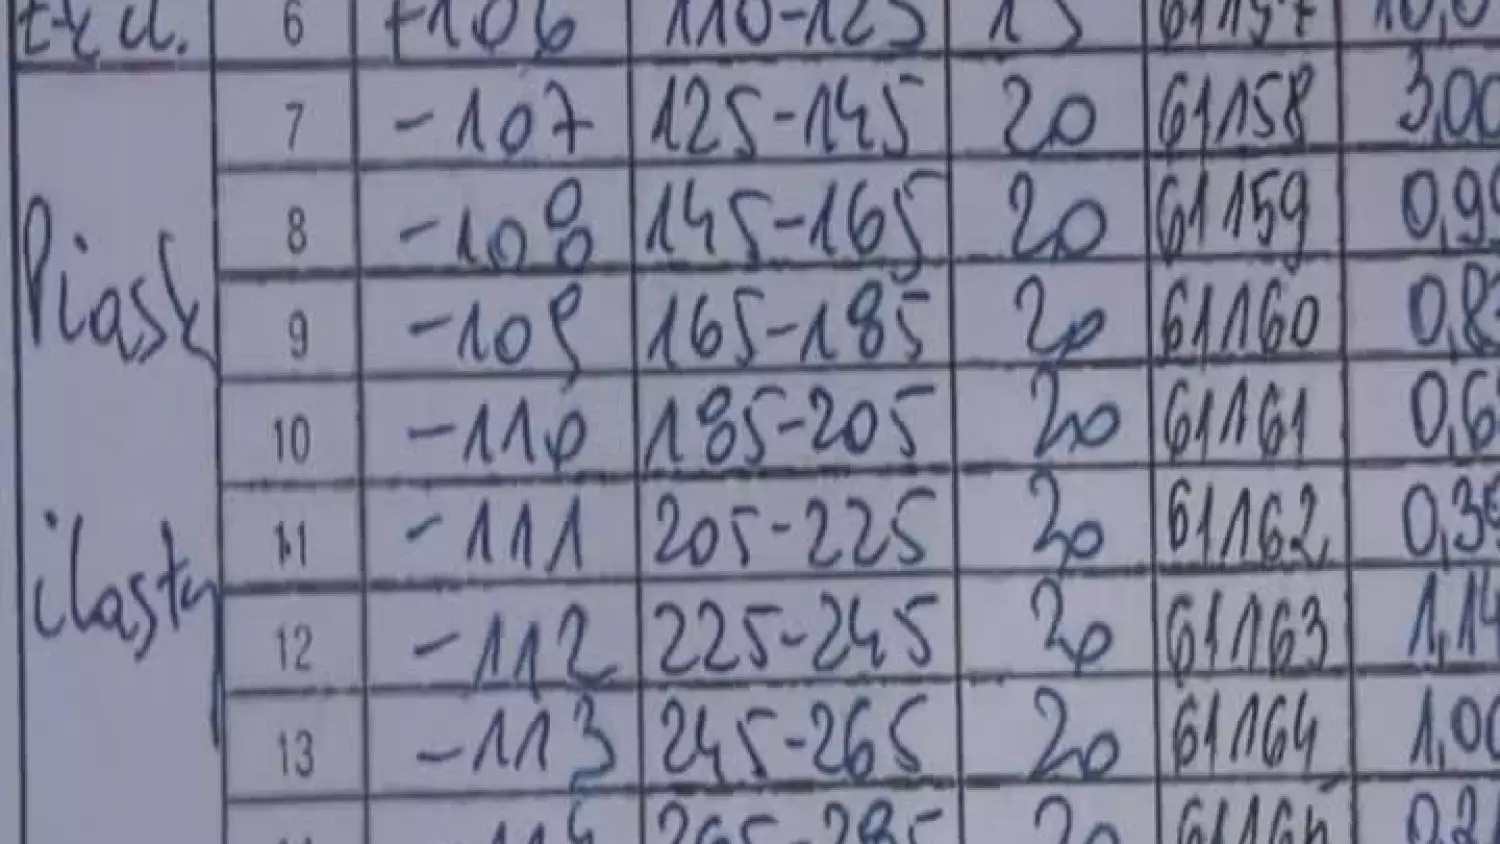 6 -106 110-125 15 61157 10,0
7 -107 125-145 20 61158 3,00
8 -108 145-165 20 61159 0,99
Piask
9 -109 165-185 20 61160 0,8
10 -110 185-205 20 61161 0,6
11 -111 205-225 20 61162 0,39
ilasty
12 -112 225-245 20 61163 1,14
13 -113 245-265 20 61164 1,00
265-285 20 0,2